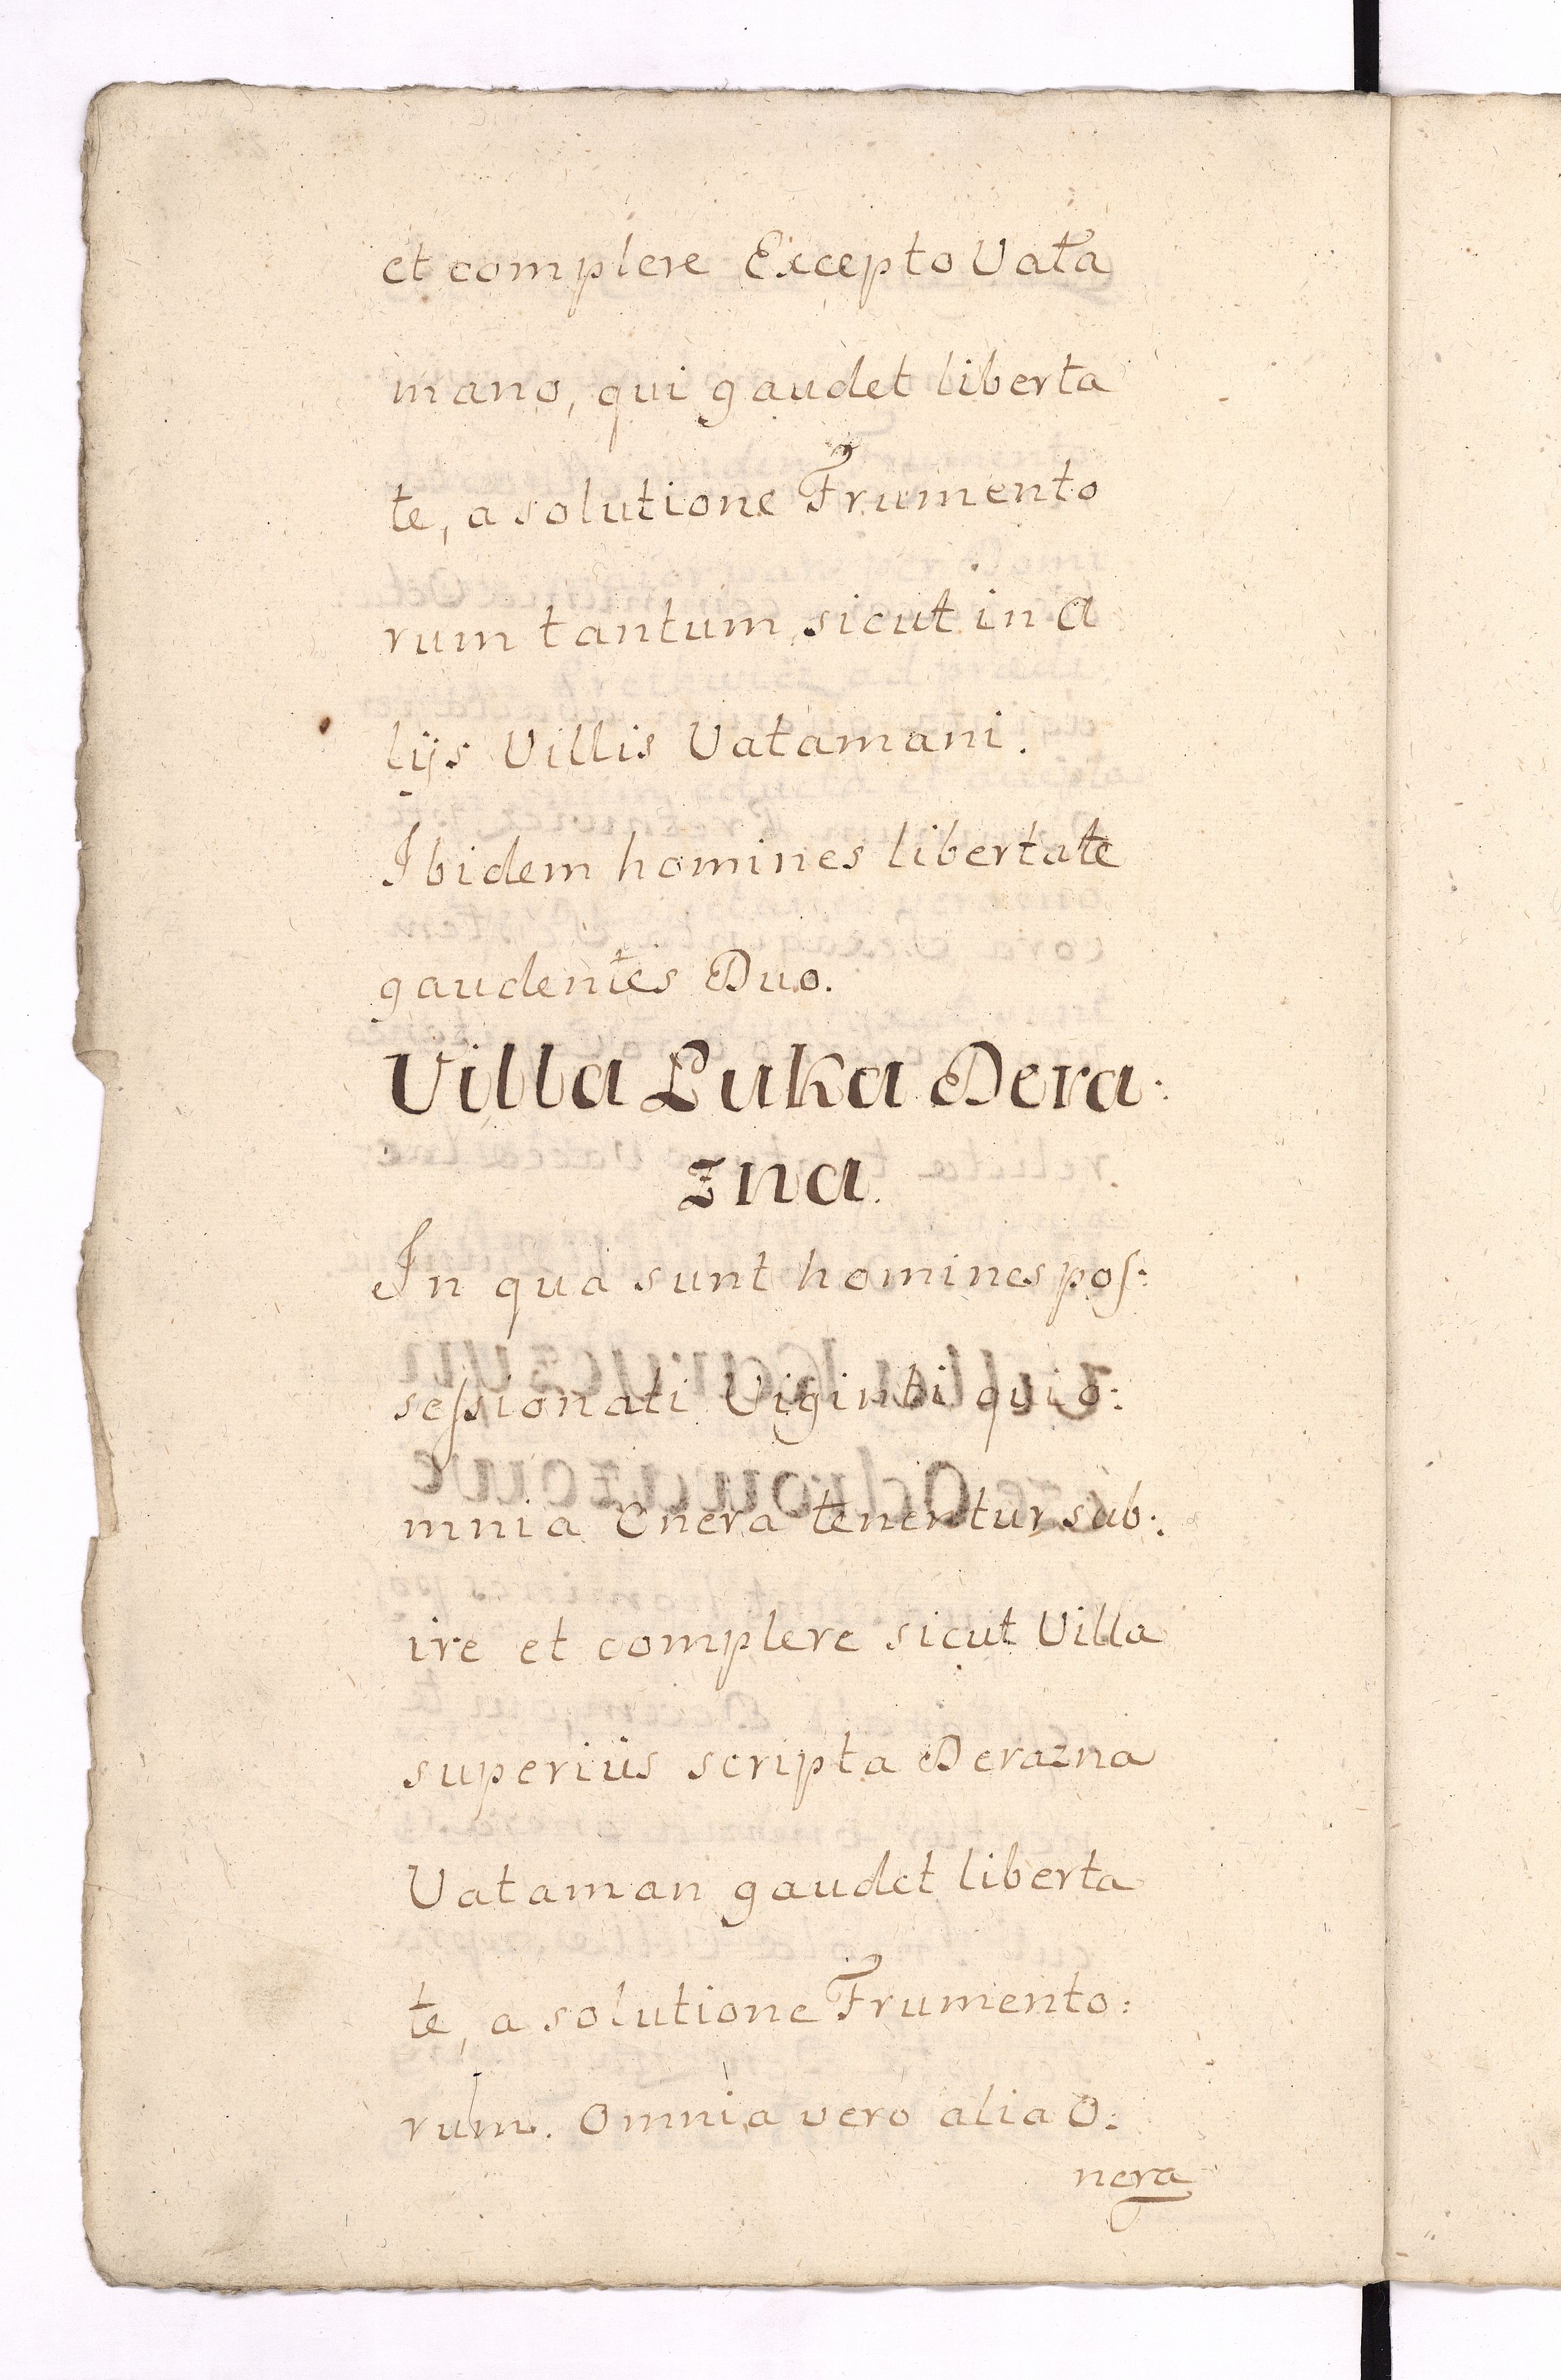 et complere Excepto Vata
mano, qui gaudet liberta
te, a solutione Frumento
rum tantum, sicut in A
lijs Villis Vatamani.
Ibidem homines libertate
gaudentes Duo.
Villa Luka Dera:
zna.
In qua sunt homines pos:
sessionati Viginti qui o:
mnia Onera tenentur sub:
ire et complere sicut Villa
superiùs scripta Derazna
Vataman gaudet liberta
te, a solutione Frumento:
rum. Omnia vero alia O:
nera